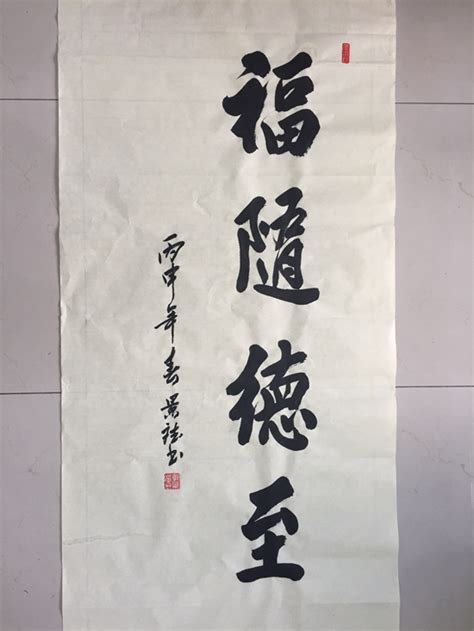 福隨德至
丙申年春景祥书